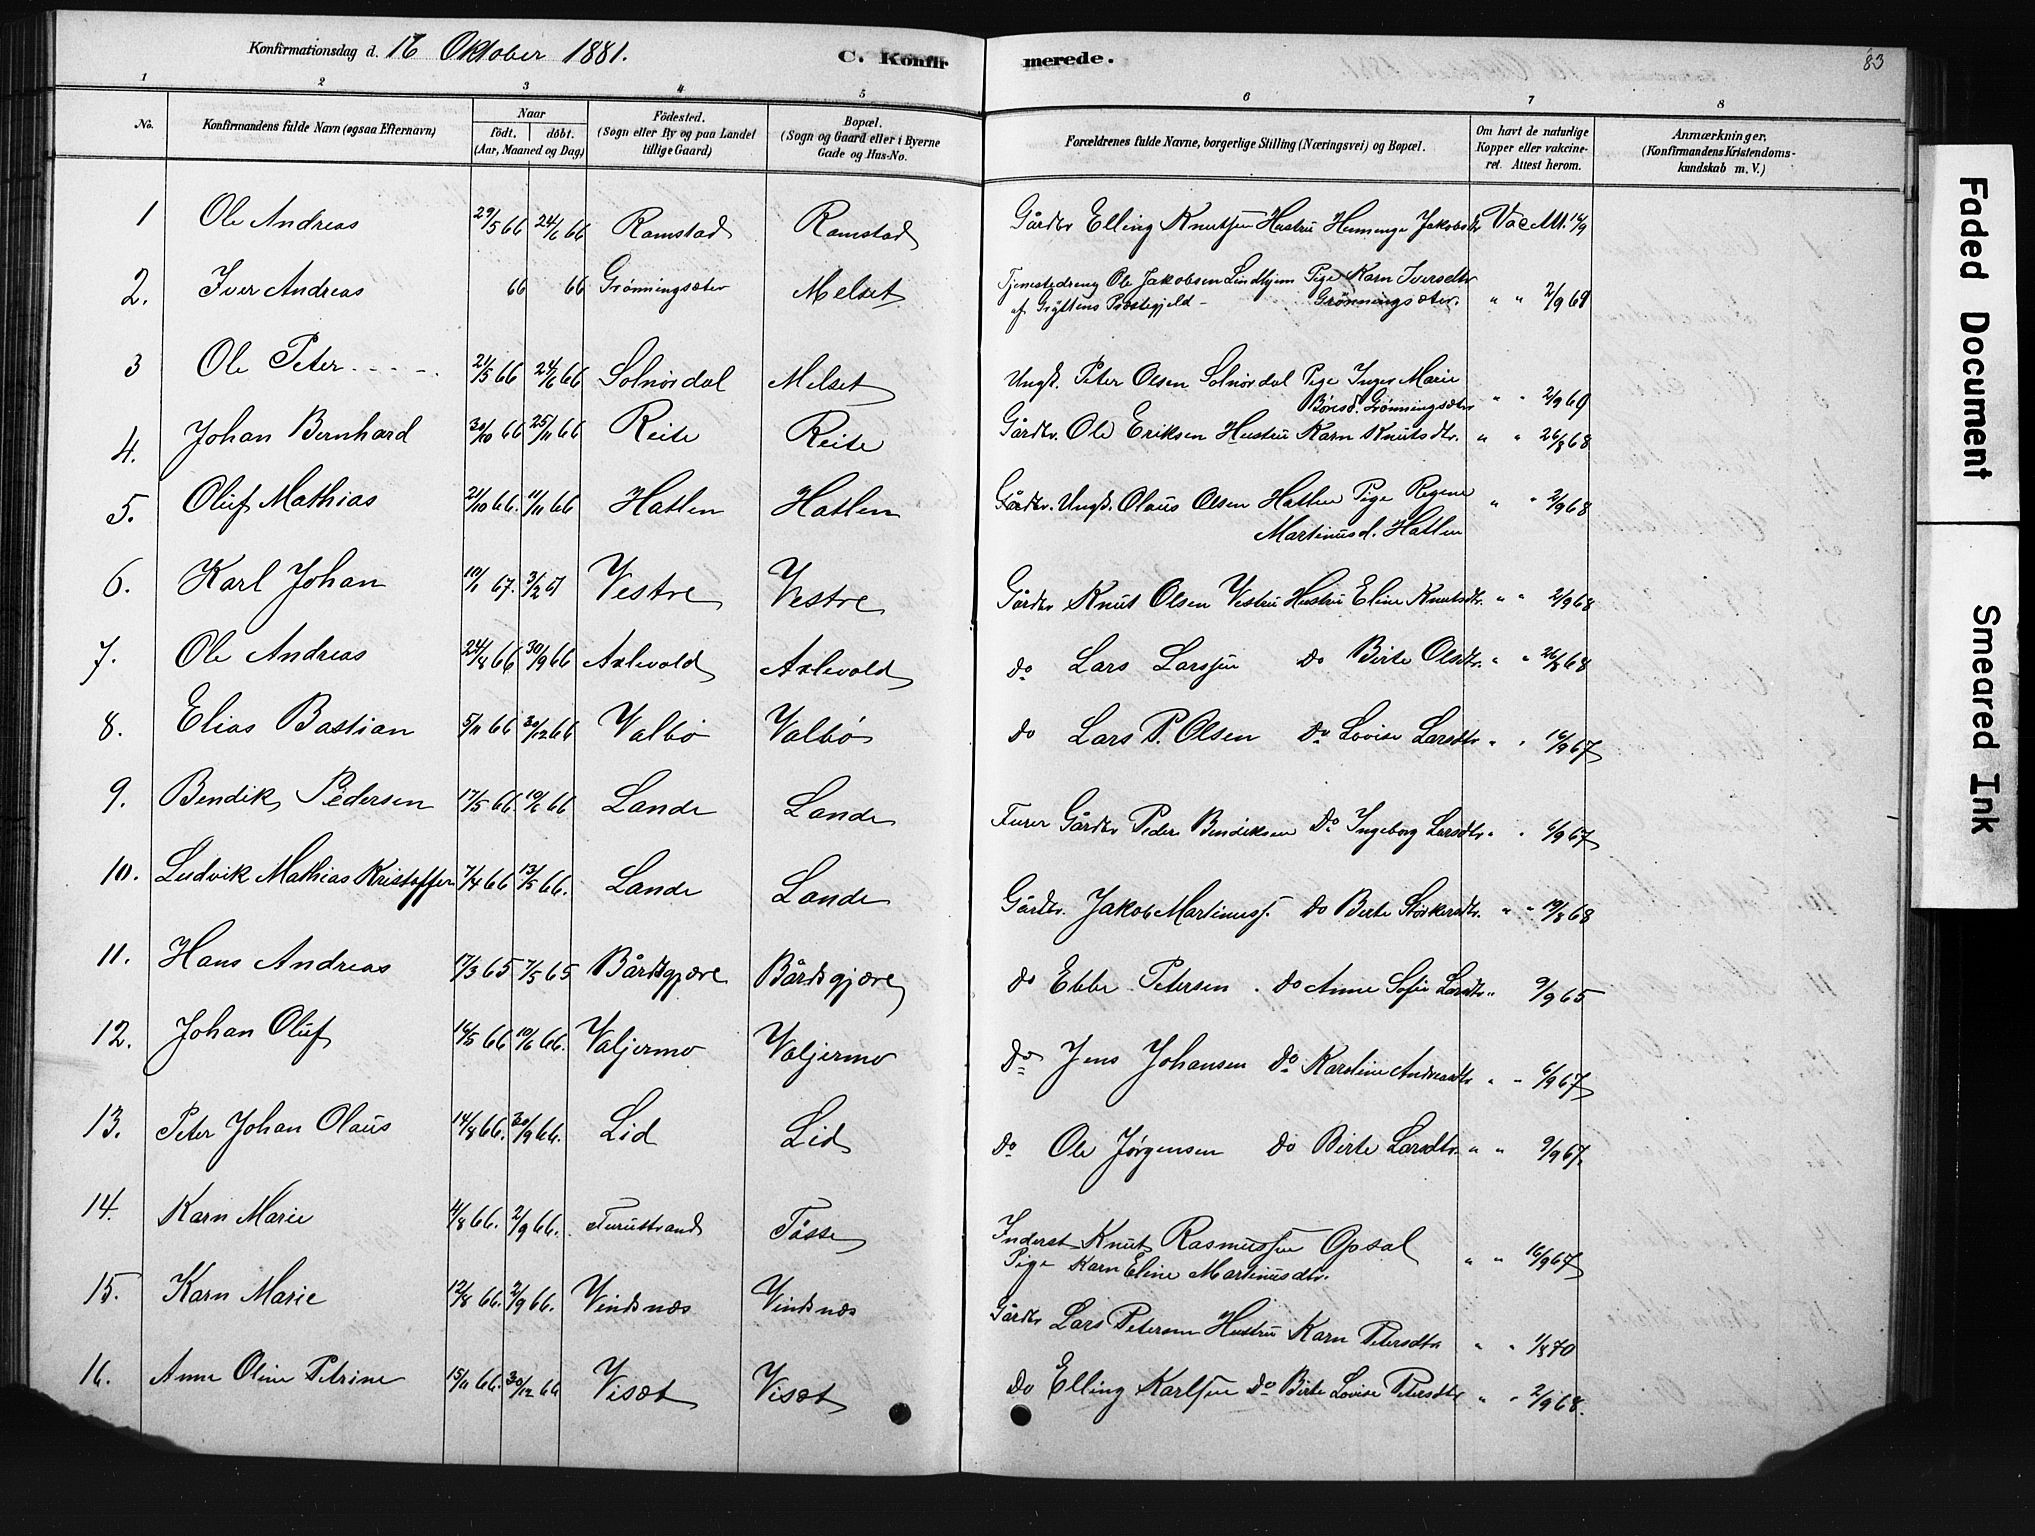 Konfirmationsdag d. 16 Oktober 1881.
C. Konfirmerede.
83
1 2 3 4 5 6 7 8
No.
Konfirmandens fulde Navn (ogsaa Efternavn)
Naar
födt. döbt.
(Aar, Maaned og Dag)
Födested.
(Sogn eller By og paa Landet
tillige Gaard)
Bopæl.
(Sogn og Gaard eller i Byerne
Gade og Hus-No.
Forældrenes fulde Navne, borgerlige Stilling (Næringsvei) og Bopæl.
Om havt de naturlige
Kopper eller vakcine-
ret. Attest herom.
Anmærkninger.
(Konfirmandens Kristendoms-
kundskab m. V.)
1 Ole Andreas 29/5 66 24/6 66 Ramstad Ramstad Gårdbr Elling Knutsen Hustru Jakobsdtr Vac Att.
2. Iver Andreas 66 66 Grönningsæter Melset Tjenestedreng Ole Jakobsen Lindhjem Pige Karn Iversdtr
af Gryttens Præstegjeld - Grönningsæter. " " 2/9 69
3 Ole Peter 21/5 66 24/6 66 Solnördal Melset Ungk. Peter Olsen Solnördal Pige Inger Marie
Grönningsæter " " 2/9 69
4. Johan Bernhard 30/10 66 25/11 66 Reite Reite Gårdbr. Ole Eriksen Hustru Karn Knutsdtr. " " 26/8 68
5. Oluf Mathias 21/10 66. 11/11 66 Hatlen Hatlen Gårdbr. Ungk. Olaus Olsen Hatlen Pige Regine
Martinusd. Hatlen " " 2/9 68
6. Karl Johan 10/1 67. 3/2 67 Vestre Vestre Gårdbr Knut Olsen Vestre Hustru Eline Knutsdtr. " " 2/9 68
7. Ole Andreas 24/8 66 30/9 66 Axlevold Axlevold do Lars Larssen do Birte Olsdtr. " " 26/8 68
8. Elias Bastian 5/11 66 30/12 66 Valbö Valbö do Lars P. Olsen Do Lovise Larsdtr " " 16/9 67
9. Bendik Pedersen 17/5 66 10/6 66 Lande Lande Furer Gårdbr Peder Bendiksen Do Ingeborg Larsdtr " " 6/9 67
10. Ludvik Mathias Kristoffer 7/4 66 13/5 66. Lande Lande Gårdbr. Jakob Martinuss. do Birte Störkersdtr. " " 19/8 68
11. Hans Andreas 17/3 65 7/5 65 Bårdsgjære Bårdsgjære do Ebbe Petersen do Anne Sofie Larsdtr " 9/9 65
12. Johan Oluf 14/5 66 10/6 66. Valjermo Valjermo Do Jens Johansen Do Karoline Andreasdtr " " 6/9 67
13. Peter Johan Olaus 14/8 66. 30/9 66. Lid Lid do Ole Jörgensen do Birte Larsdtr. " " 9/9 67.
14. Karn Marie 4/8 66. 2/9 66. Furustrand Tåsse Inderst Knut Rasmussen Opsal
Pige Karn Eline Martinusdtr. " " 16/9 67
15. Karn Marie 12/8 66. 2/9 66. Vindsnæs Vindsnæs Gårdbr Lars Petersen Hustru Karn Petersdtr " " 1/8 70
16. Anne Oline Petrine 15/11 66. 30/12 66 Visæt Visæt do Elling Karlsen Do Birte Lovise Petersdtr " " 2/9 68.
Faded Document
Smeared Ink